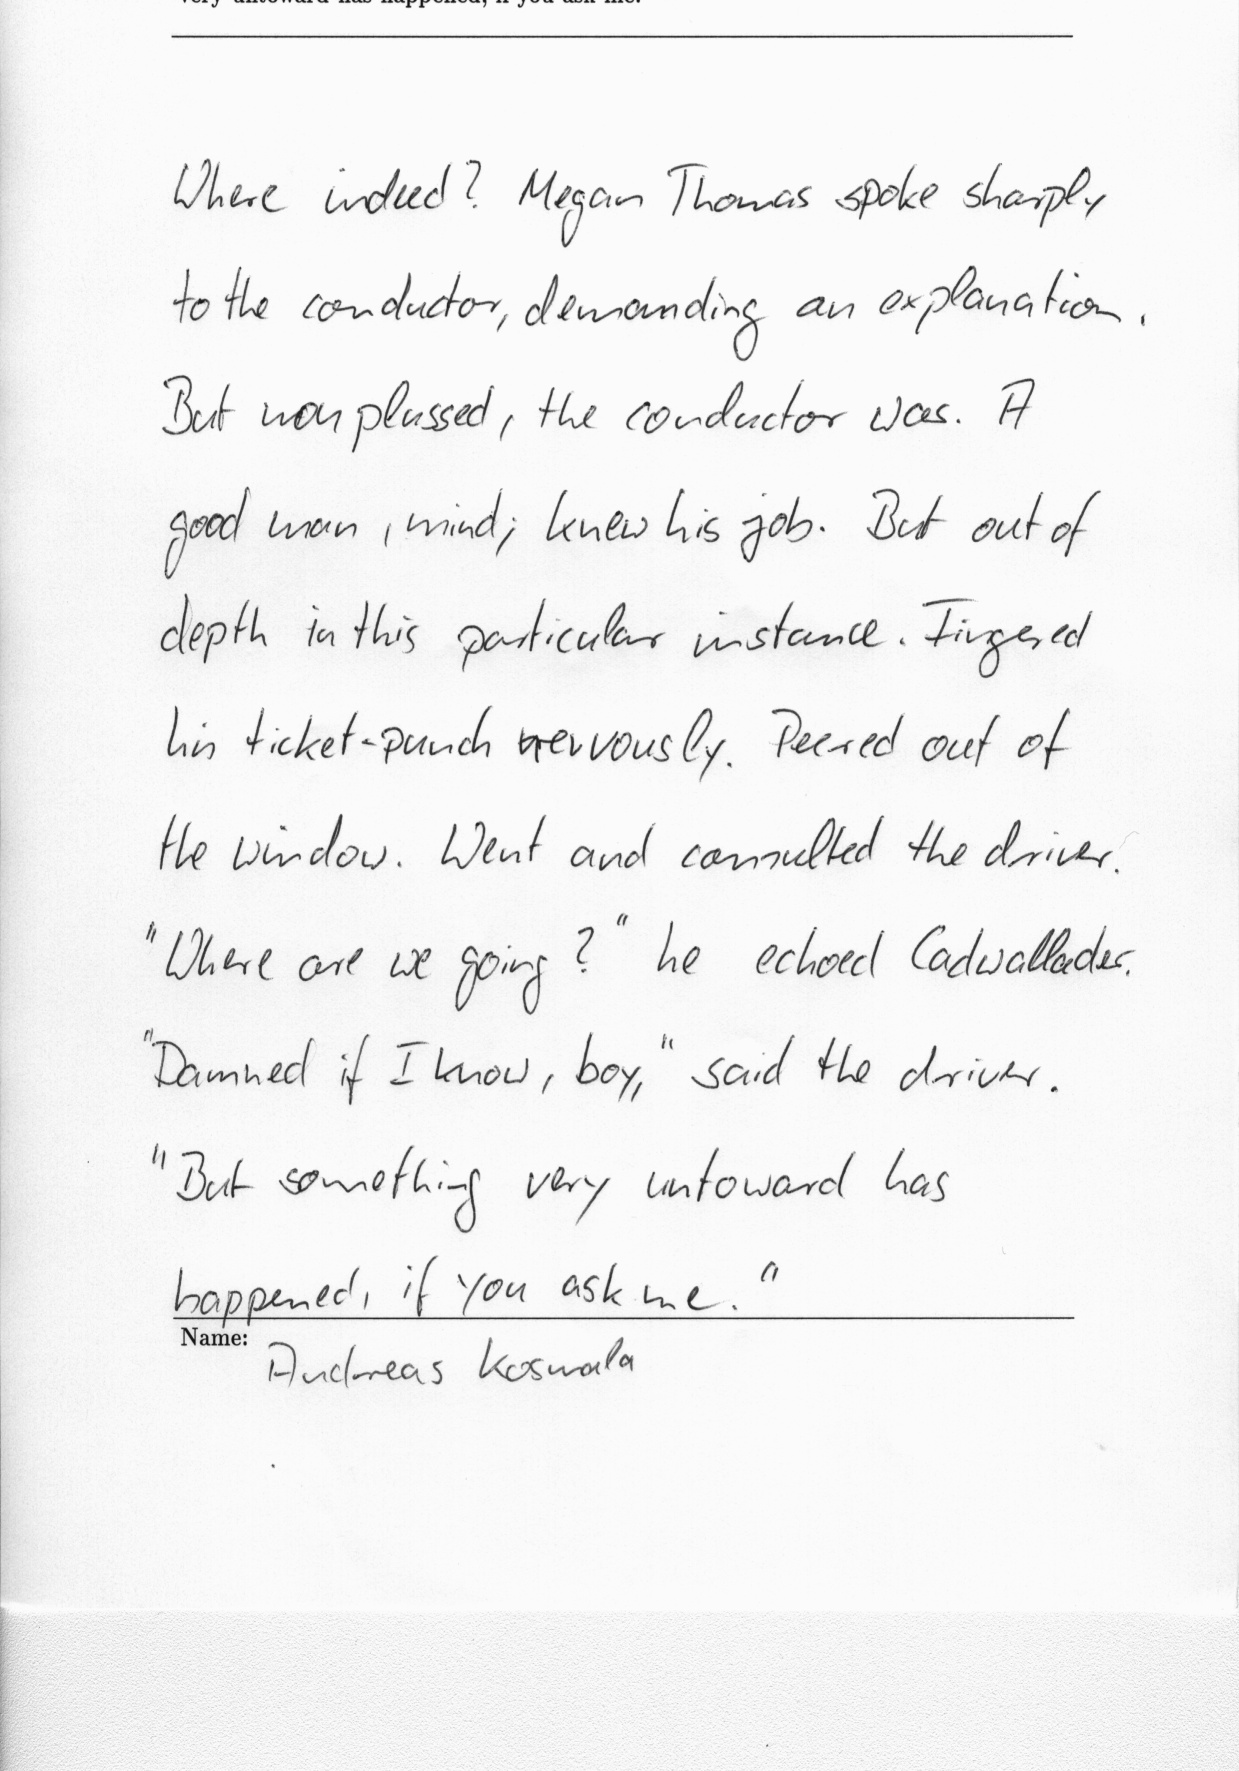 very untoward has happened, if you ask me.
Where indeed? Megan Thomas spoke sharply
to the conductor, demanding an explanation.
But nonplussed, the conductor was. A
good man, mind; knew his job. But out of
depth in this particular instance. Fingered
his ticket-punch nervously. Peered out of
the window. Went and consulted the driver.
"Where are we going?" he echoed Cadwallader.
"Damned if I know, boy," said the driver.
"But something very untoward has
happened, if you ask me."
Name:
Andreas Kosmala